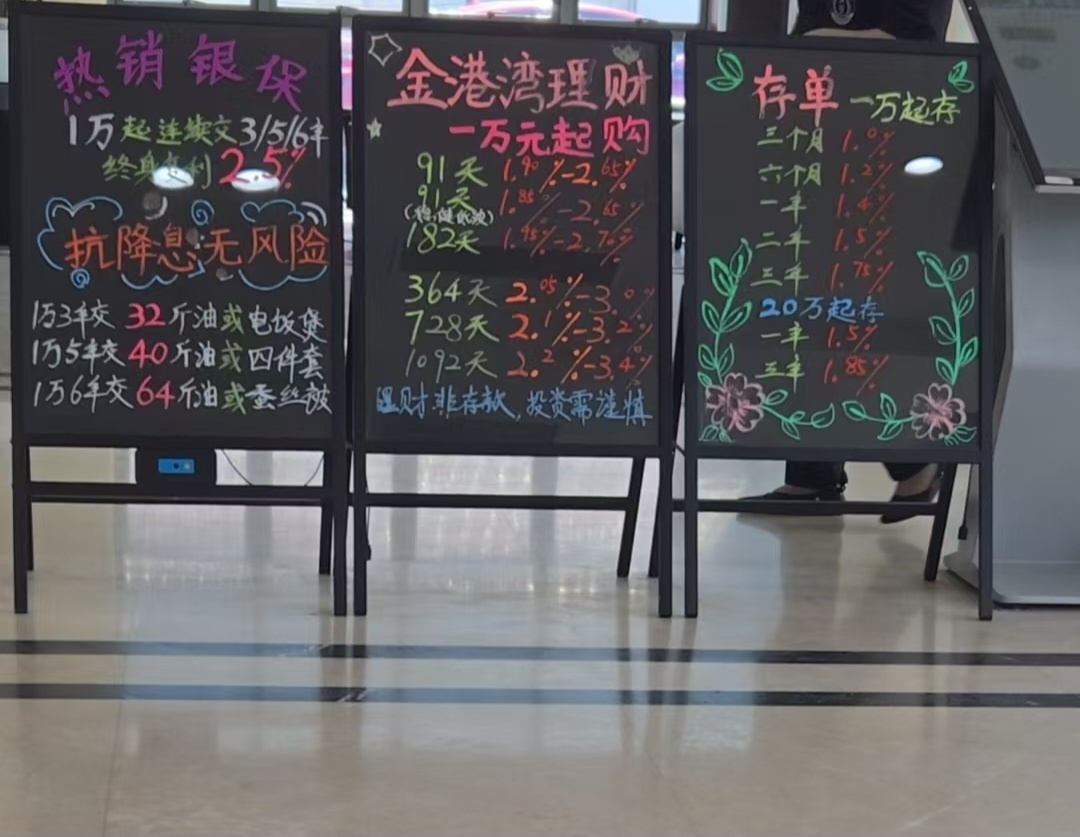 热销银保
1万起连续交3/5/6年
终身复利2.5%
抗降息无风险
1万3年交32斤油或电饭煲
1万5年交40斤油或四件套
1万6年交64斤油或蚕丝被
金港湾理财
一万元起购
91天 1.90%-2.65%
91天 1.85%-2.65%
182天 1.95%-2.70%
364天 2.05%-3.0%
728天 2.1%-3.2%
1092天 2.2%-3.4%
理财非存款,投资需谨慎
存单 一万起存
三个月 1.0%
六个月 1.2%
一年 1.4%
二年 1.5%
三年 1.75%
20万起存
一年 1.5%
三年 1.85%